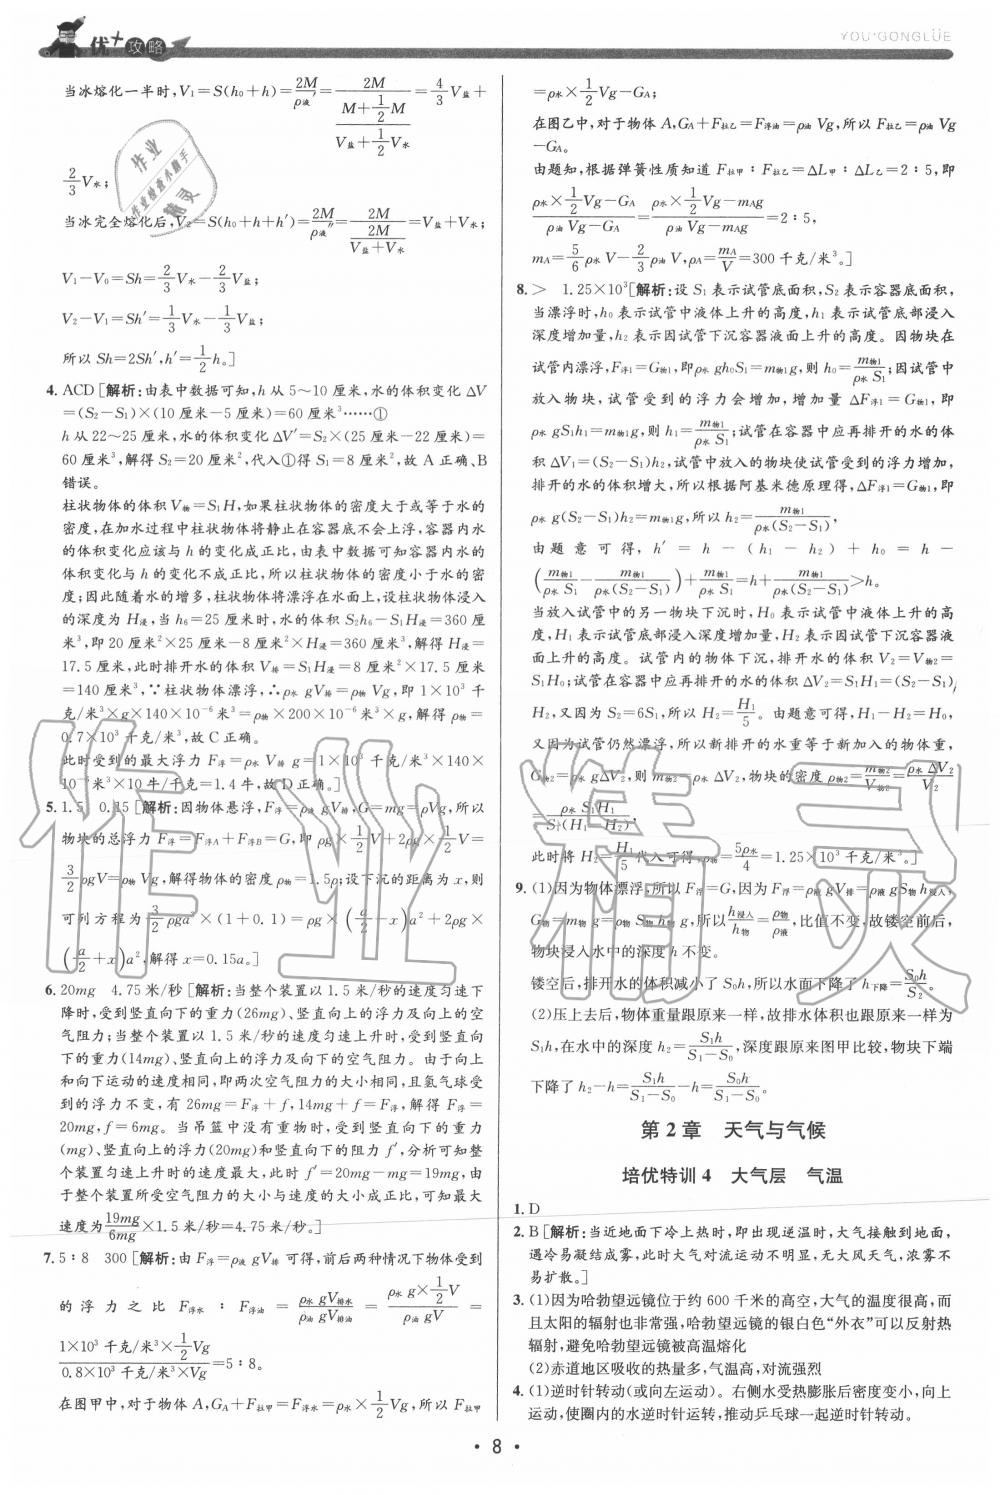 优+攻略
YOU+GONGLÜE
当冰熔化一半时,V₁=S(h₀+h)=2M/ρ液′=2M/((M+1/2M)/(V盐+1/2V水))=4/3V盐+
2/3V水;
当冰完全熔化后,V₂=S(h₀+h+h′)=2M/ρ液″=2M/(2M/(V盐+V水))=V盐+V水;
V₁-V₀=Sh=2/3V水-2/3V盐;
V₂-V₁=Sh′=1/3V水-1/3V盐;
所以Sh=2Sh′,h′=1/2h。]
4. ACD[解析:由表中数据可知,h从5~10厘米,水的体积变化ΔV
=(S₂-S₁)×(10厘米-5厘米)=60厘米³……①
h从22~25厘米,水的体积变化ΔV′=S₂×(25厘米-22厘米)=
60厘米³,解得S₂=20厘米²,代入①得S₁=8厘米²,故A正确、B
错误。
柱状物体的体积V物=S₁H,如果柱状物体的密度大于或等于水的
密度,在加水过程中柱状物体将静止在容器底不会上浮,容器内水
的体积变化应该与h的变化成正比,由表中数据可知容器内水的
体积变化与h的变化不成正比,所以柱状物体的密度小于水的密
度;因此随着水的增多,柱状物体将漂浮在水面上,设柱状物体浸入
的深度为H浸,当h₆=25厘米时,水的体积S₂h₆-S₁H浸=360厘
米³,即20厘米²×25厘米-8厘米²×H浸=360厘米³,解得H浸=
17.5厘米,此时排开水的体积V排=S₁H浸=8厘米²×17.5厘米
=140厘米³,∵柱状物体漂浮,∴ρ水gV排=ρ物Vg,即1×10³千
克/米³×g×140×10⁻⁶米³=ρ物×200×10⁻⁶米³×g,解得ρ物=
0.7×10³千克/米³,故C正确。
此时受到的最大浮力F浮=ρ水V排g=1×10³千克/米³×140×
10⁻⁶米³×10牛/千克=1.4牛,故D正确。]
5. 1.5 0.15[解析:因物体悬浮,F浮=ρ液gV排,G=mg=ρVg,所以
物块的总浮力F浮=F浮A+F浮B=G,即ρg×1/2V+2ρg×1/2V=
3/2ρgV=ρ物Vg,解得物体的密度ρ物=1.5ρ;设下沉的距离为x,则
可列方程为3/2ρga³×(1+0.1)=ρg×(a/2-x)a²+2ρg×
(a/2+x)a²,解得x=0.15a。]
6. 20mg 4.75米/秒[解析:当整个装置以1.5米/秒的速度匀速下
降时,受到竖直向下的重力(26mg)、竖直向上的浮力及向上的空
气阻力;当整个装置以1.5米/秒的速度匀速上升时,受到竖直向
下的重力(14mg)、竖直向上的浮力及向下的空气阻力。由于向上
和向下运动的速度相同,即两次空气阻力的大小相同,且氦气球受
到的浮力不变,有26mg=F浮+f,14mg+f=F浮,解得F浮=
20mg,f=6mg。当吊篮中没有重物时,受到竖直向下的重力
(mg)、竖直向上的浮力(20mg)和竖直向下的阻力f′,分析可知整
个装置匀速上升时的速度最大,此时f′=20mg-mg=19mg,由
于整个装置所受空气阻力的大小与速度的大小成正比,可知最大
速度为19mg/6mg×1.5米/秒=4.75米/秒。]
7. 5∶8 300[解析:由F浮=ρ液gV排可得,前后两种情况下物体受到
的浮力之比F浮水∶F浮油=ρ水gV排水/ρ油gV排油=(ρ水g×1/2V)/(ρ油gV)=
(1×10³千克/米³×1/2Vg)/(0.8×10³千克/米³×Vg)=5∶8。
在图甲中,对于物体A,GA+F拉甲=F浮水=ρ水×1/2Vg,所以F拉甲
=ρ水×1/2Vg-GA;
在图乙中,对于物体A,GA+F拉乙=F浮油=ρ油Vg,所以F拉乙=ρ油Vg
-GA。
由题知,根据弹簧性质知道F拉甲∶F拉乙=ΔL甲∶ΔL乙=2∶5,即
(ρ水×1/2Vg-GA)/(ρ油Vg-GA)=(ρ水×1/2Vg-mAg)/(ρ油Vg-mAg)=2∶5,
mA=5/6ρ水V-2/3ρ油V,ρA=mA/V=300千克/米³。]
8. > 1.25×10³[解析:设S₁表示试管底面积,S₂表示容器底面积,
当漂浮时,h₀表示试管中液体上升的高度,h₁表示试管底部浸入
深度增加量,h₂表示因试管下沉容器液面上升的高度。因物块在
试管内漂浮,F浮1=G物1,即ρ水gh₀S₁=m物1g,则h₀=m物1/(ρ水S₁);因试管中
放入物块,试管受到的浮力会增加,增加量ΔF浮1=G物1,即
ρ水gS₁h₁=m物1g,则h₁=m物1/(ρ水S₁);试管在容器中应再排开的水的体
积ΔV₁=(S₂-S₁)h₂,试管中放入的物块使试管受到的浮力增加,
排开的水的体积增大,所以根据阿基米德原理得,ΔF浮1=G物1,即
ρ水g(S₂-S₁)h₂=m物1g,所以h₂=m物1/(ρ水(S₂-S₁)),
由题意可得,h′=h-(h₁-h₂)+h₀=h-
(m物1/(ρ水S₁)-m物1/(ρ水(S₂-S₁)))+m物1/(ρ水S₁)=h+m物1/(ρ水(S₂-S₁))>h。
当放入试管中的另一物块下沉时,H₀表示试管中液体上升的高
度,H₁表示试管底部浸入深度增加量,H₂表示因试管下沉容器液
面上升的高度。试管内的物体下沉,排开水的体积V₂=V物2=
S₁H₀;试管在容器中应再排开的水的体积ΔV₂=S₁H₁=(S₂-S₁)
H₂,又因为S₂=6S₁,所以H₂=H₁/5。由题意可得,H₁-H₂=H₀,
又因为试管仍然漂浮,所以新排开的水重等于新加入的物体重,
G物2=ρ水gΔV₂,则m物2=ρ水ΔV₂,物块的密度ρ物2=m物2/V物2=ρ水ΔV₂/V₂
=ρ水S₁H₁/(S₁(H₁-H₂)),
此时将H₂=H₁/5代入可得,ρ物2=5ρ水/4=1.25×10³千克/米³。]
9. (1)因为物体漂浮,所以F浮=G,因为F浮=ρ液gV排=ρ液gS物h浸入,
G物=m物g=ρ物S物h物g,所以h浸入/h物=ρ物/ρ液,比值不变,故镂空前后,
物块浸入水中的深度h不变。
镂空后,排开水的体积减小了S₀h,所以水面下降了h下降=S₀h/S₂。
(2)压上去后,物体重量跟原来一样,故排水体积也跟原来一样为
S₁h,在水中的深度h₂=S₁h/(S₁-S₀),深度跟原来图甲比较,物块下端
下降了h₂-h=S₁h/(S₁-S₀)-h=S₀h/(S₁-S₀)。
第2章 天气与气候
培优特训4 大气层 气温
1. D
2. B[解析:当近地面下冷上热时,即出现逆温时,大气接触到地面,
遇冷易凝结成雾,此时大气对流运动不明显,无大风天气,浓雾不
易扩散。]
3. (1)因为哈勃望远镜位于约600千米的高空,大气的温度很高,而
且太阳的辐射也非常强,哈勃望远镜的银白色“外衣”可以反射热
辐射,避免哈勃望远镜被高温熔化
(2)赤道地区吸收的热量多,气温高,对流强烈
4. (1)逆时针转动(或向左运动)。右侧水受热膨胀后密度变小,向上
运动,使圈内的水逆时针运转,推动乒乓球一起逆时针转动。
· 8 ·
作业精灵
作业
作业检查小助手
精灵